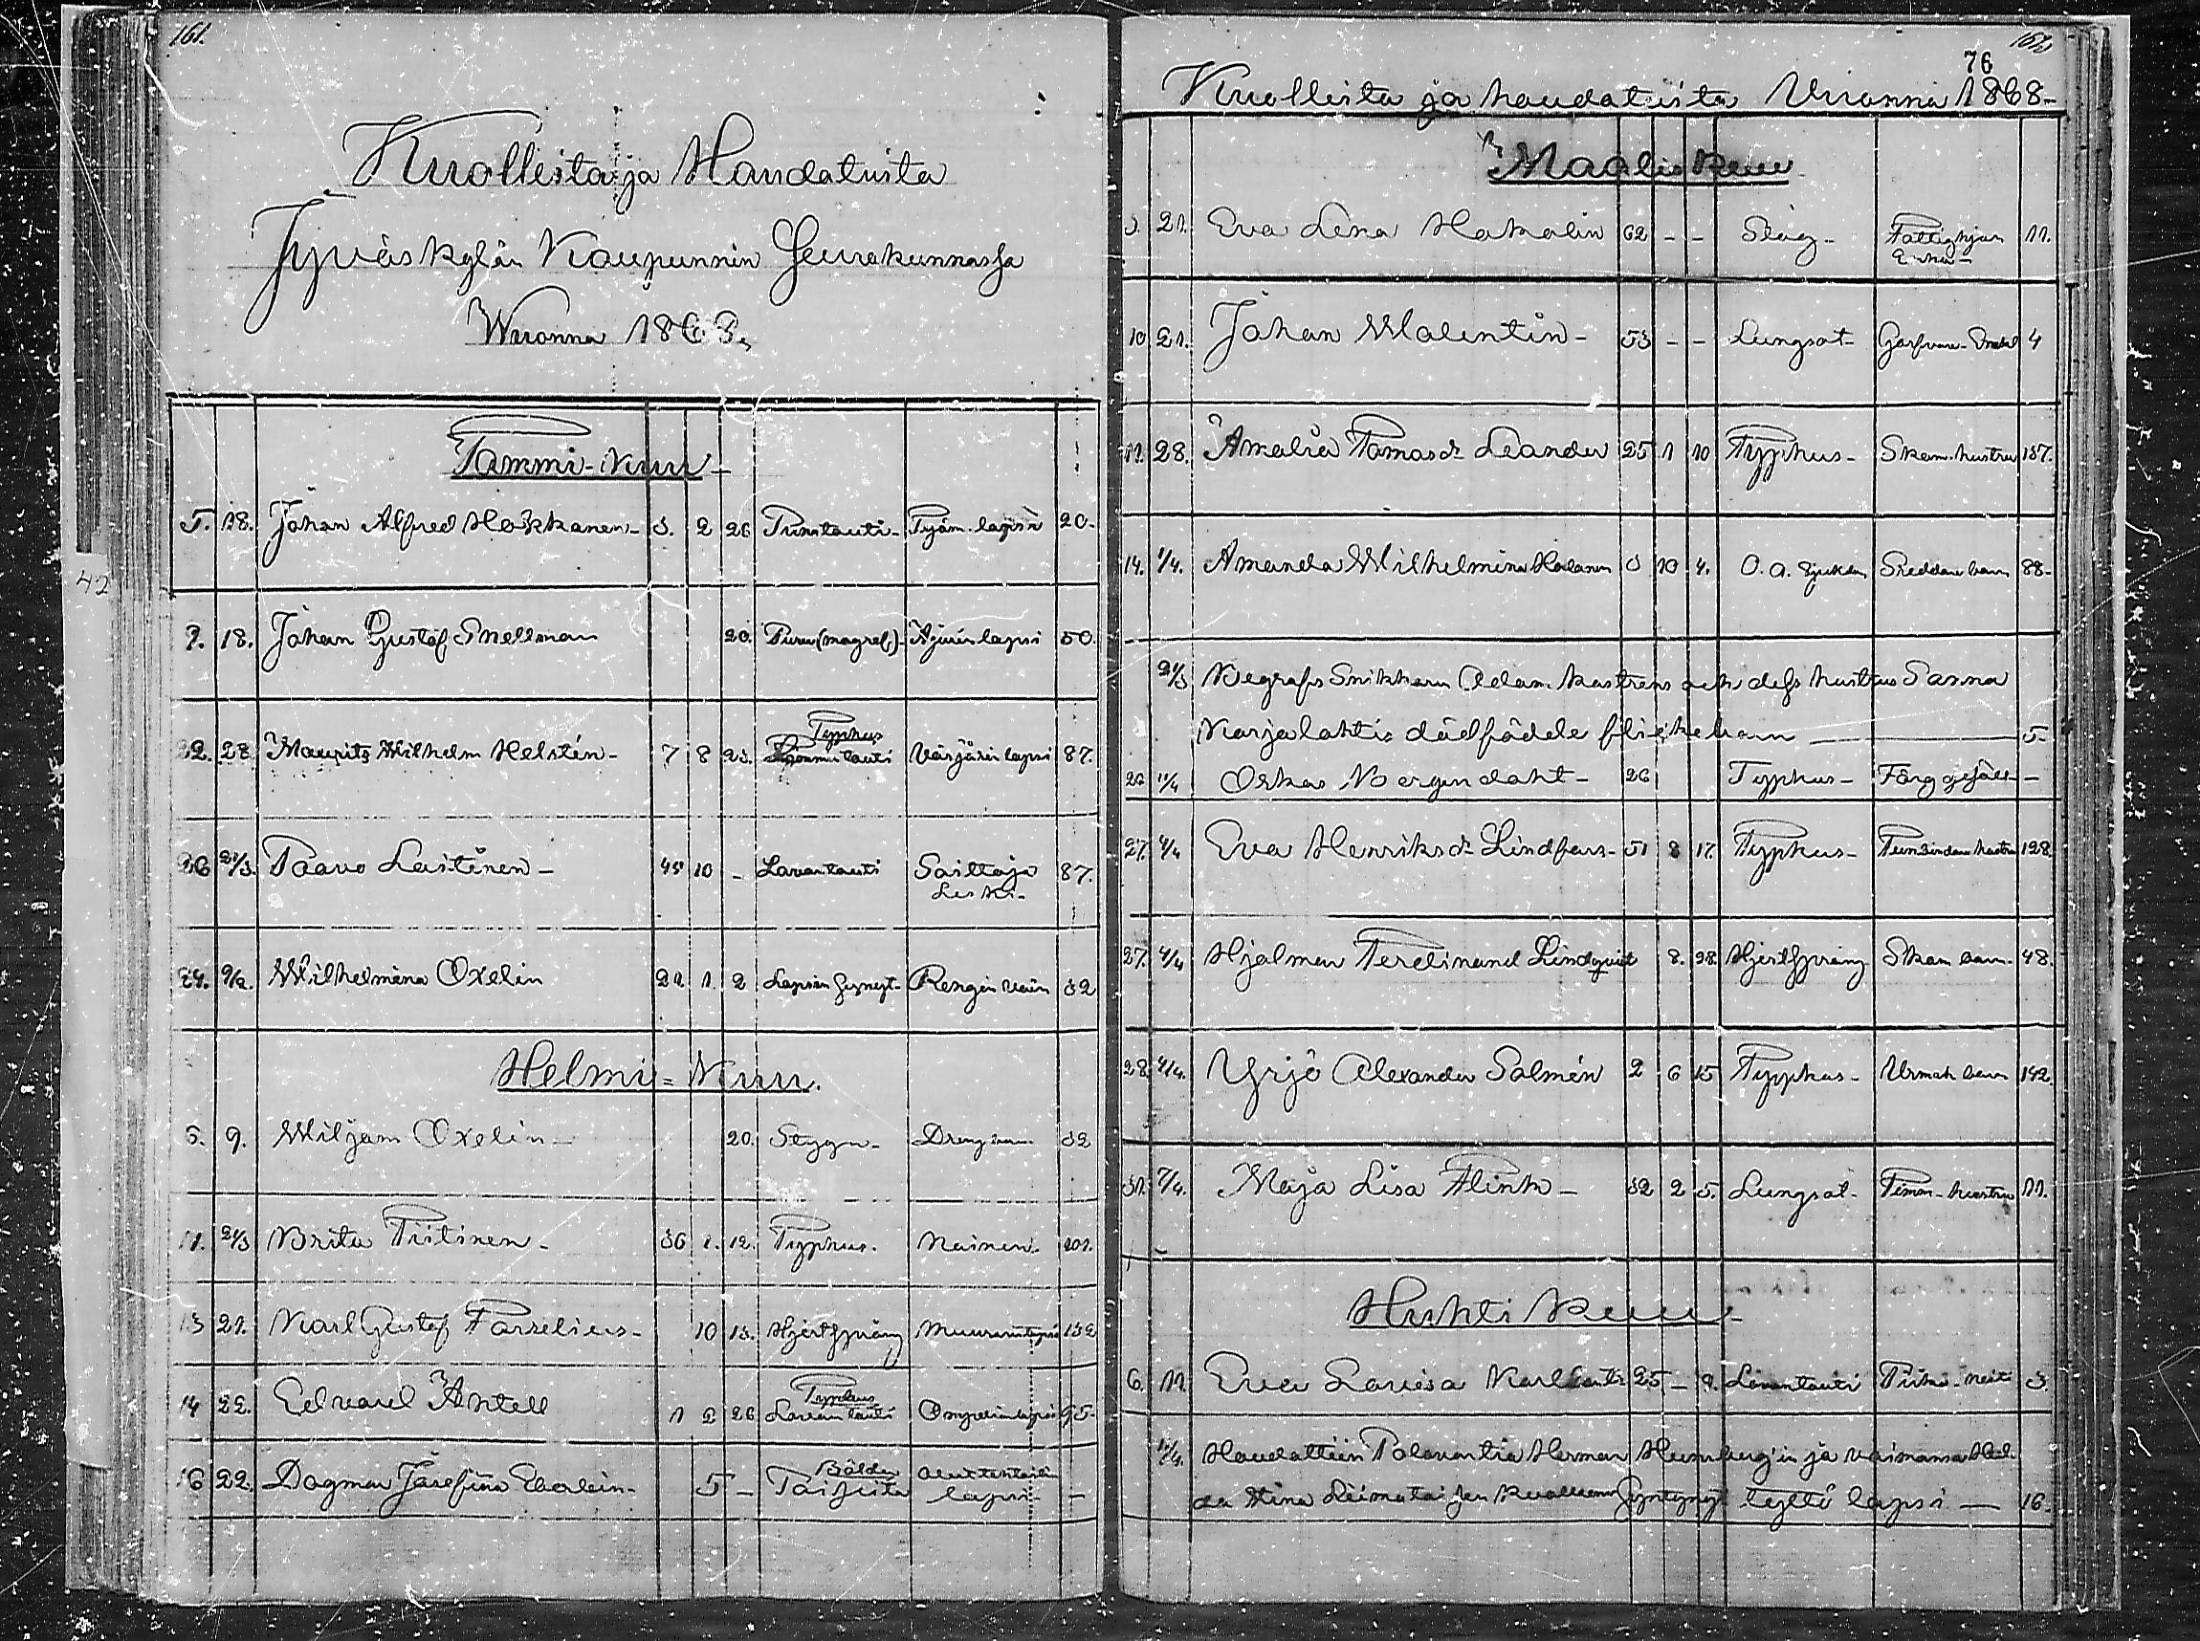 161.
Kuolleista ja Haudatuista
Jyväskylän Kaupunnin Seurakunnassa
Wuonna 1868.
Tammi-Kuu-
5. 18. Johan Alfred Hokkanen- 3. 2 26 Punatauti- Työm. lapsi 20.
9. 18. Johan Gustaf Snellman 20. Puru (magref)- Ajurin lapsi 50.
Typhus
22. 28 Maurits Wilhelm Helstén- 7 8 23. tauti Värjärin lapsi 87.
26 21/3. Paavo Laitinen- 45 10 - Lavantauti Soittaja 87.
Leski-
24. 9/2. Wilhelmina Oxelin 22 1. 2 Lapsin Rengin vaim 32
Helmi=Kuu.
6. 9. Wiljam Oxelin- 20. Drengbarn 32
11. 21/3 Brita Piitinen- 36 1. 12. Typhus. Nainen. 201.
13 21. Karl Gustaf Forselius- 10 13. Hjertsprång Muurarin lapsi 132
Typhus
14 22. Edvard Antell 1 2 26 Lavantauti lapsi 95.
Bölder
16 22. Dagmar Josefina Eberlein- 5 - Paiseita
lapsi- -
42
162
76
Kuolleista ja haudatuista Vuonna 1868-
Maaliskuu
3. 21. Eva Lena Hakalin 62 - - Slag- Fattighjon 11.
Enka-
10 21. Johan Walentin- 53 - - Lungsot- 4
11. 28. Amalia Tomasdr Leander 25 1 10 Typhus- Skom. hustru 157.
14. 1/4. Amanda Wilhelmina 3 10 4. O. a. Sjukdom barn 88-
21/3 Begrafs Snikkaren Adam Kastrens och dess hustrus Sanna
Karjalahtis dödfödde flickebarn 5-
26 11/4 Oskar Bergendaht- 26 Typhus- Färggesäll -
27. 4/4 Eva Henriksdr Lindfors- 51 8 17. Typhus- hustru 128.
27. 4/4 Hjalmar Ferdinand Lindqvist 8. 28. Hjertsprång Skom barn. 48.
28 4/4. Yrjö Alexander Salmén 2 6 15 Typhus- Urmak barn 142.
31. 7/4. Maja Lisa Flink- 32 2 5. Lungsot- Timm- hustru 11.
Huhti Kuu-
6. 11. Eva Lovisa 25 - 9. Lavantauti Piika-neit 3.
11/4. Haudattiin Herman ja vaimonsa Hed-
da Stina tyttö lapsi — 16.